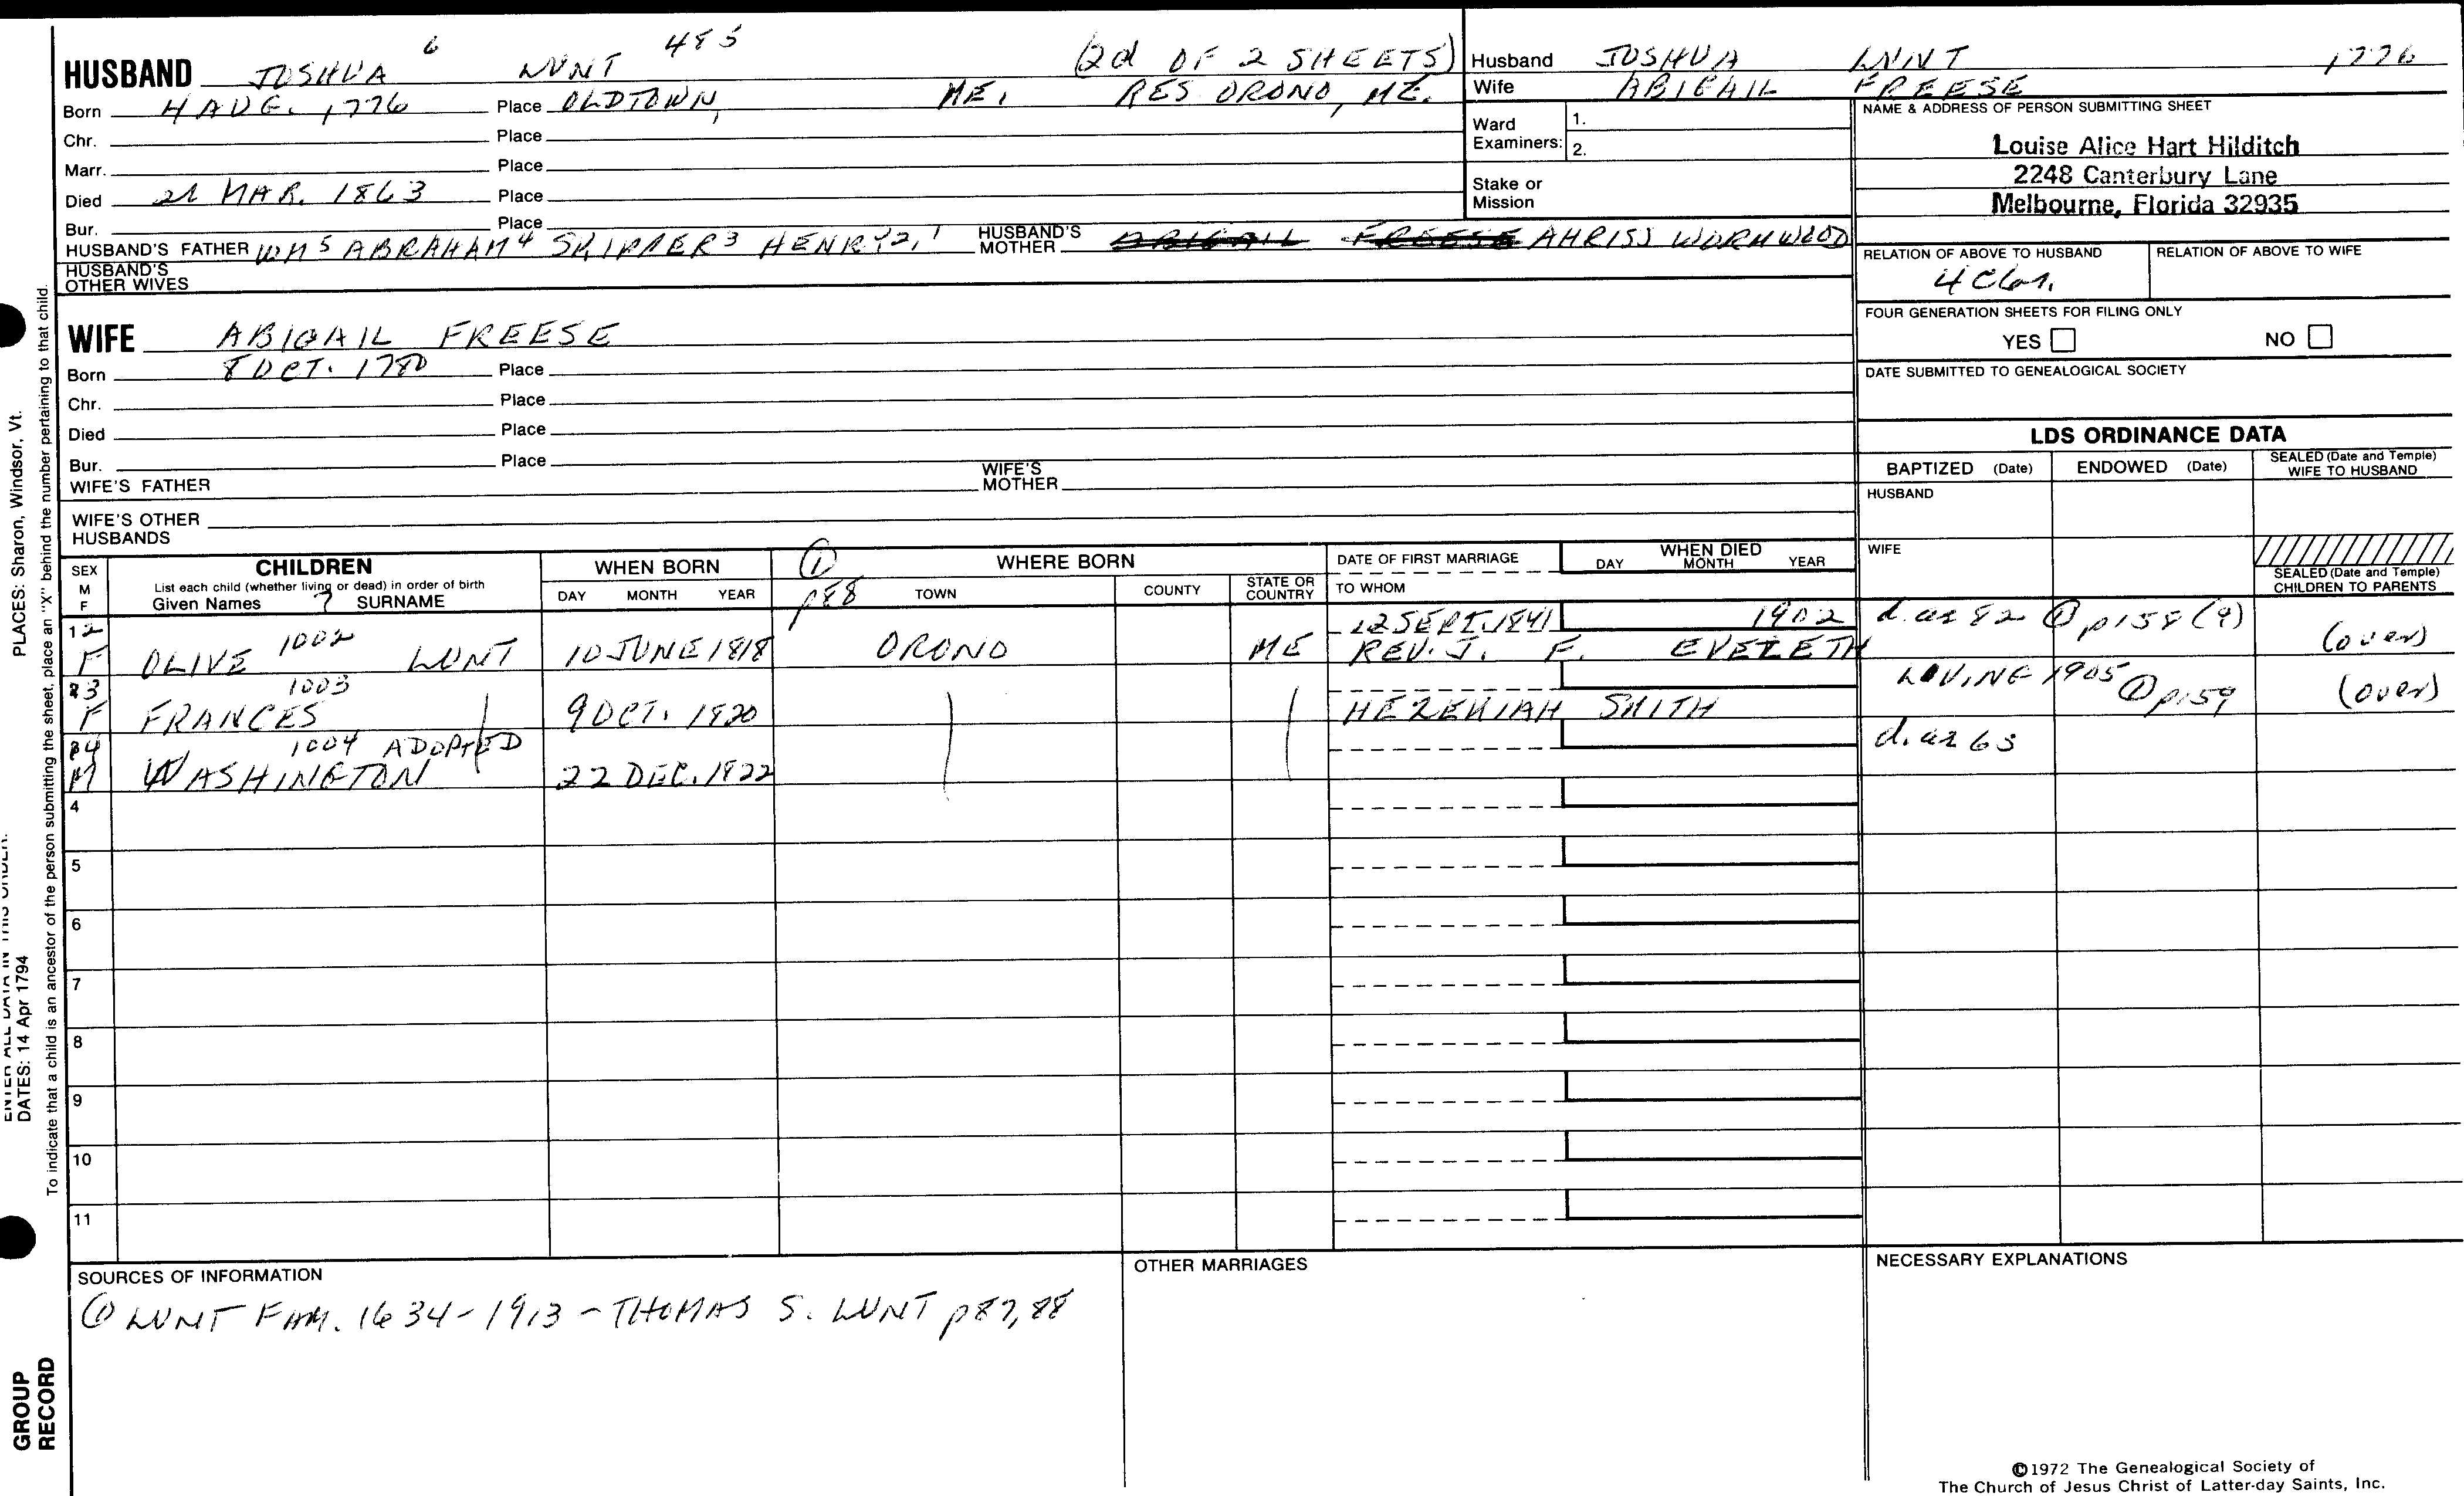 HUSBAND JOSHUA 6 LUNT 485 (2d OF 2 SHEETS)
Born 4 AUG. 1776 Place OLDTOWN, ME, RES ORONO, ME.
Chr. Place
Marr. Place
Died 21 MAR. 1863 Place
Bur. Place
HUSBAND'S FATHER WM 5 ABRAHAM 4 SKIPPER 3 HENRY 2, 1 HUSBAND'S MOTHER ABIGAIL FREESE AHRISS WORMWOOD
HUSBAND'S OTHER WIVES
Husband JOSHUA LUNT 1776
Wife ABIGAIL FREESE
Ward Examiners: 1.
2.
Stake or Mission
NAME & ADDRESS OF PERSON SUBMITTING SHEET
Louise Alice Hart Hilditch
2248 Canterbury Lane
Melbourne, Florida 32935
RELATION OF ABOVE TO HUSBAND RELATION OF ABOVE TO WIFE
FOUR GENERATION SHEETS FOR FILING ONLY
YES NO
DATE SUBMITTED TO GENEALOGICAL SOCIETY
WIFE ABIGAIL FREESE
Born 8 OCT. 1780 Place
Chr. Place
Died Place
Bur. Place
WIFE'S FATHER WIFE'S MOTHER
WIFE'S OTHER HUSBANDS
LDS ORDINANCE DATA
BAPTIZED (Date) ENDOWED (Date) SEALED (Date and Temple) WIFE TO HUSBAND
HUSBAND
WIFE
SEALED (Date and Temple) CHILDREN TO PARENTS
SEX M F CHILDREN
List each child (whether living or dead) in order of birth
Given Names 7 SURNAME
WHEN BORN
DAY MONTH YEAR
① p88 WHERE BORN
TOWN COUNTY STATE OR COUNTRY
DATE OF FIRST MARRIAGE
TO WHOM
WHEN DIED
DAY MONTH YEAR
12 1002 12 SEPT. 1841 1902 d. ae 82 ① p158 (9)
F OLIVE LUNT 10 JUNE 1818 ORONO ME REV. J. F. EVELETH (over)
13 1003 LIVING 1905 ① p159
F FRANCES 9 OCT. 1820 HEZEKIAH SMITH (over)
14 1004 ADOPTED d. ae 63
M WASHINGTON 22 DEC. 1822
4
5
6
7
8
9
10
11
SOURCES OF INFORMATION
① LUNT FAM. 1634-1913 - THOMAS S. LUNT p87, 88
OTHER MARRIAGES
NECESSARY EXPLANATIONS
©1972 The Genealogical Society of
The Church of Jesus Christ of Latter-day Saints, Inc.
PLACES: Sharon, Windsor, Vt.
DATES: 14 Apr 1794
To indicate that a child is an ancestor of the person submitting the sheet, place an "X" behind the number pertaining to that child.
GROUP
RECORD